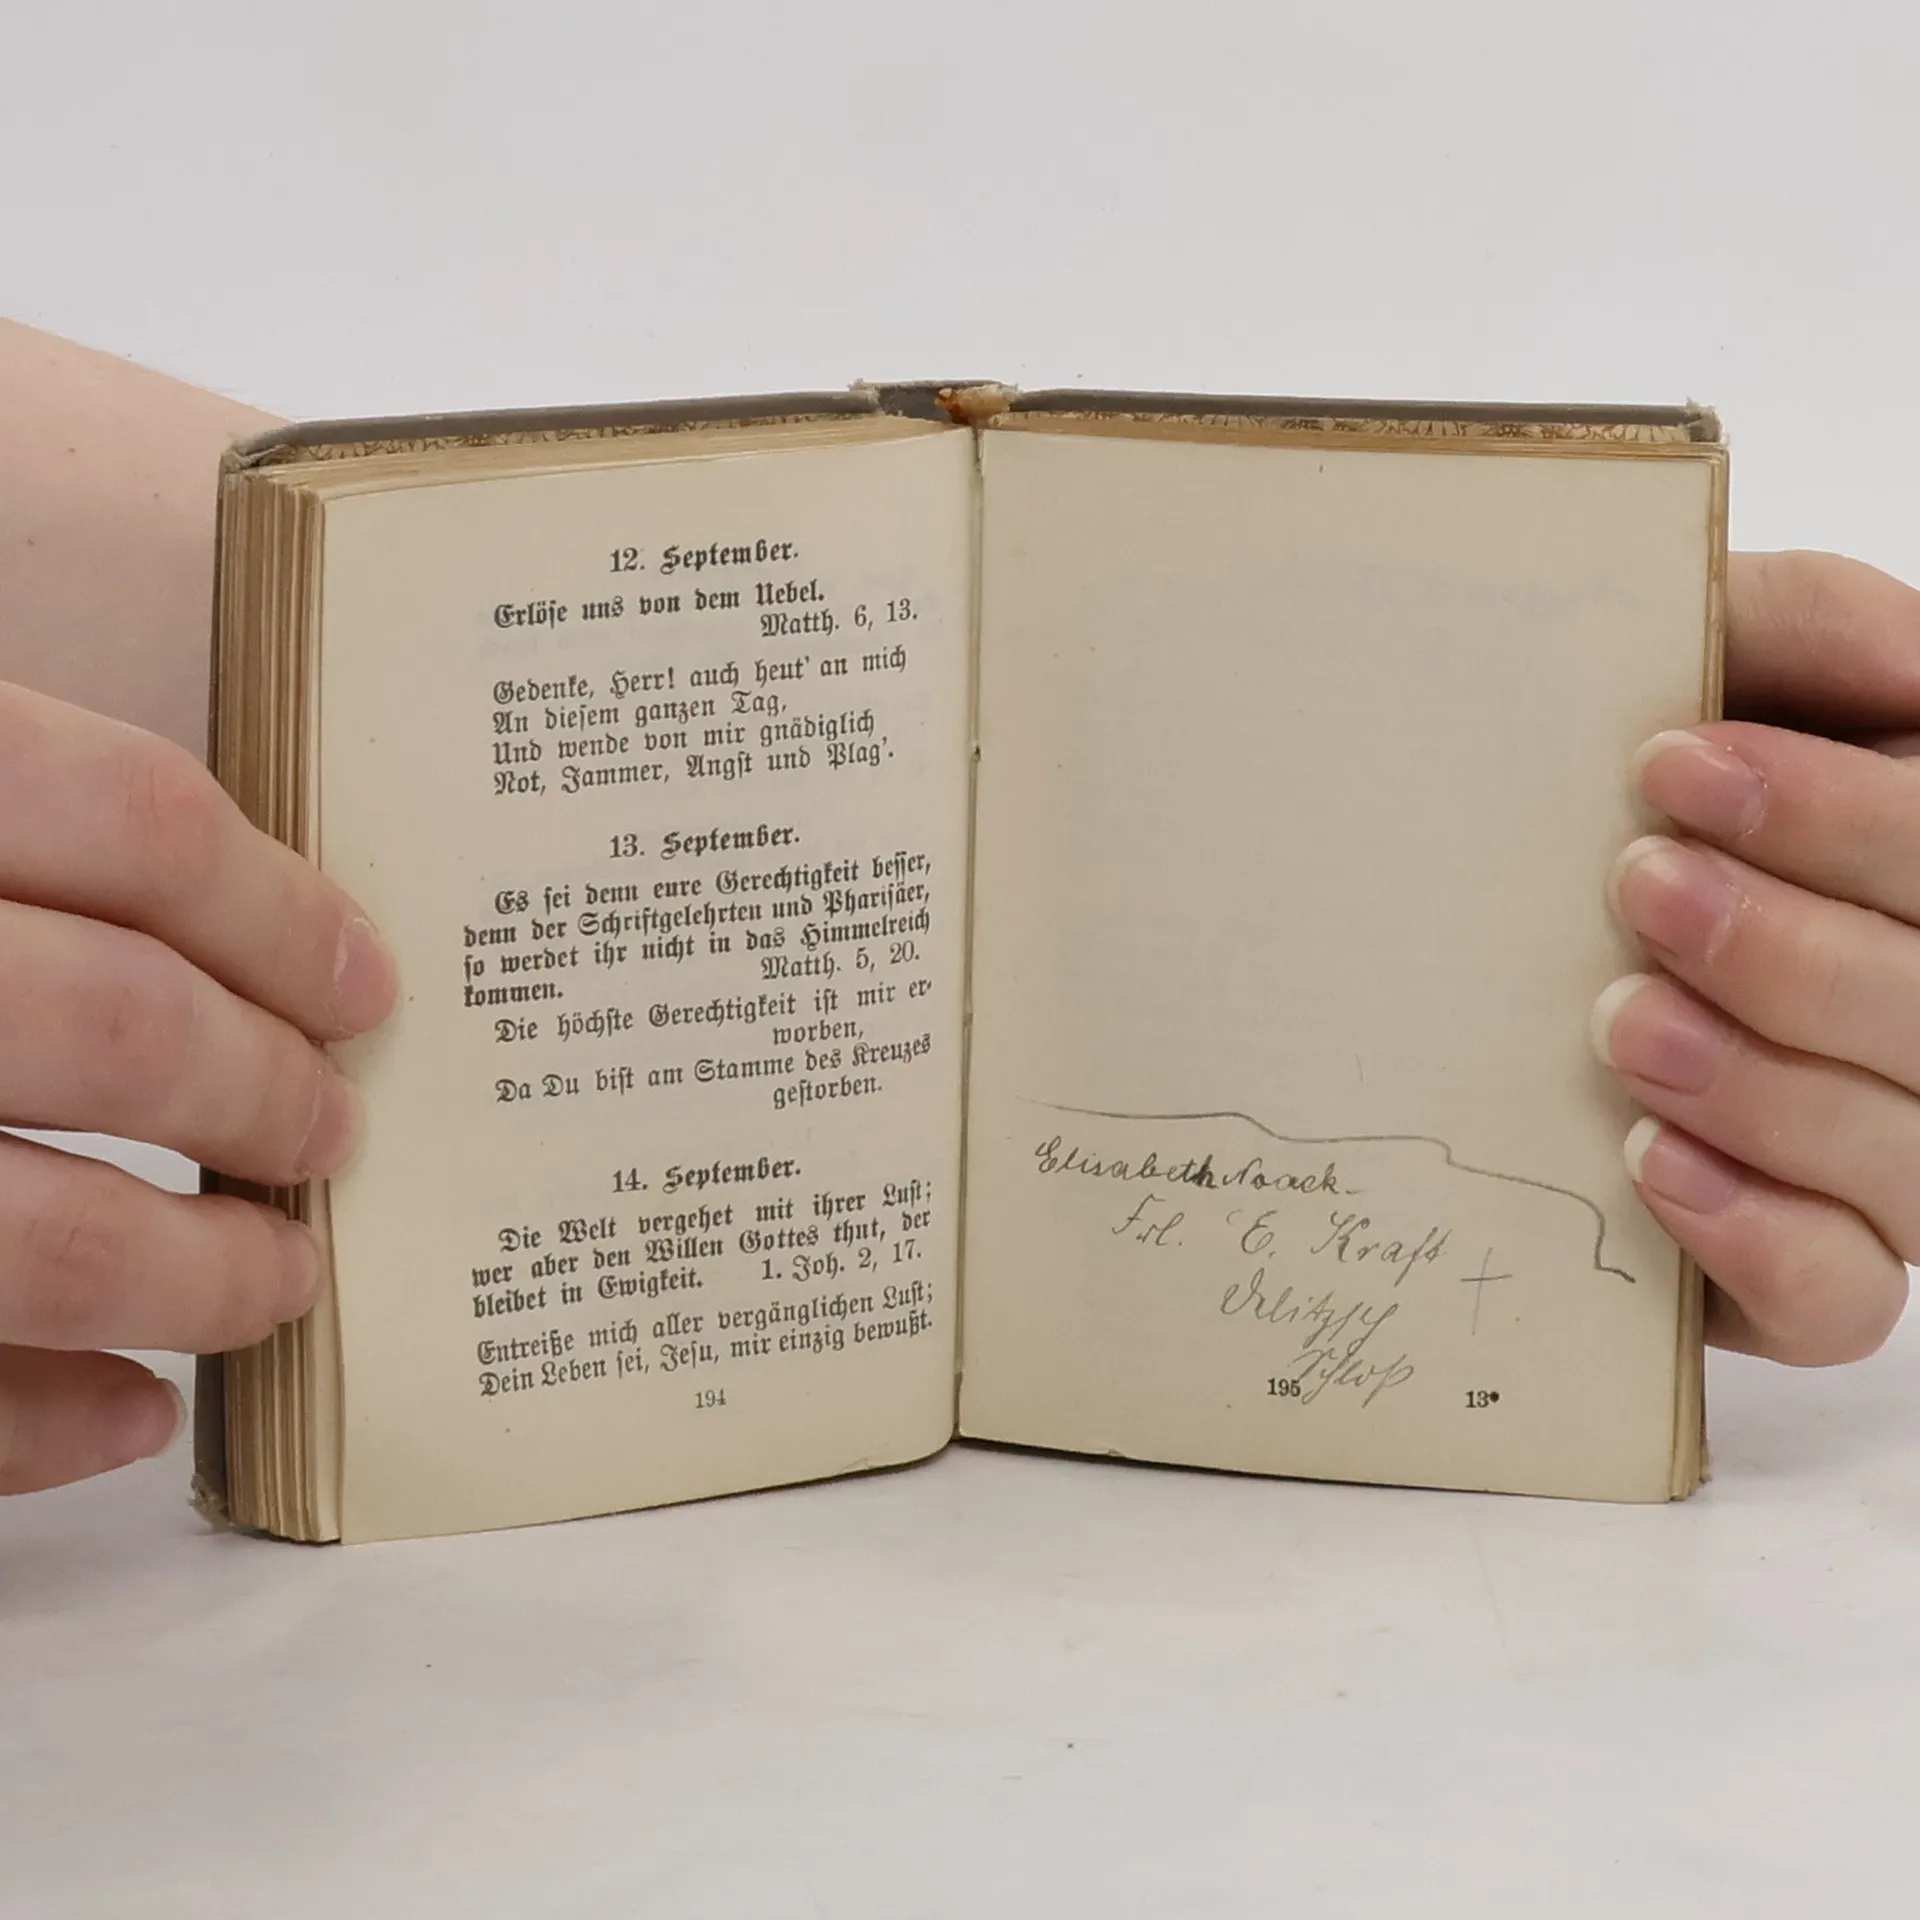 12. September.
Erlöse uns von dem Uebel.
Matth. 6, 13.
Gedenke, Herr! auch heut' an mich
An diesem ganzen Tag,
Und wende von mir gnädiglich
Not, Jammer, Angst und Plag'.
13. September.
Es sei denn eure Gerechtigkeit besser,
denn der Schriftgelehrten und Pharisäer,
so werdet ihr nicht in das Himmelreich
kommen. Matth. 5, 20.
Die höchste Gerechtigkeit ist mir er-
worben,
Da Du bist am Stamme des Kreuzes
gestorben.
14. September.
Die Welt vergehet mit ihrer Lust;
wer aber den Willen Gottes thut, der
bleibet in Ewigkeit. 1. Joh. 2, 17.
Entreiße mich aller vergänglichen Lust;
Dein Leben sei, Jesu, mir einzig bewußt.
194
Elisabeth Noack.
Frl. E. Kraft
Delitzsch
Schloß
195 13*